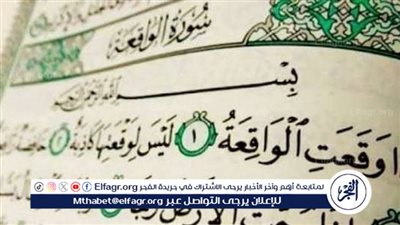 سُورَةُ الوَاقِعَةِ
بِسْمِ اللَّهِ الرَّحْمَٰنِ الرَّحِيمِ
ا وَقَعَتِ ٱلْوَاقِعَةُ ١ لَيْسَ لِوَقْعَتِهَا كَاذِبَةٌ ٢ خَافِضَةٌ
ٱلْأَرْضُ رَجًّا
Elfagr.org
لمتابعة أهم وآخر الأخبار يرجى الاشتراك في جريدة الفجر Elfagr.org
للإعلان يرجى التواصل عبر Mthabet@elfagr.org
الفجر